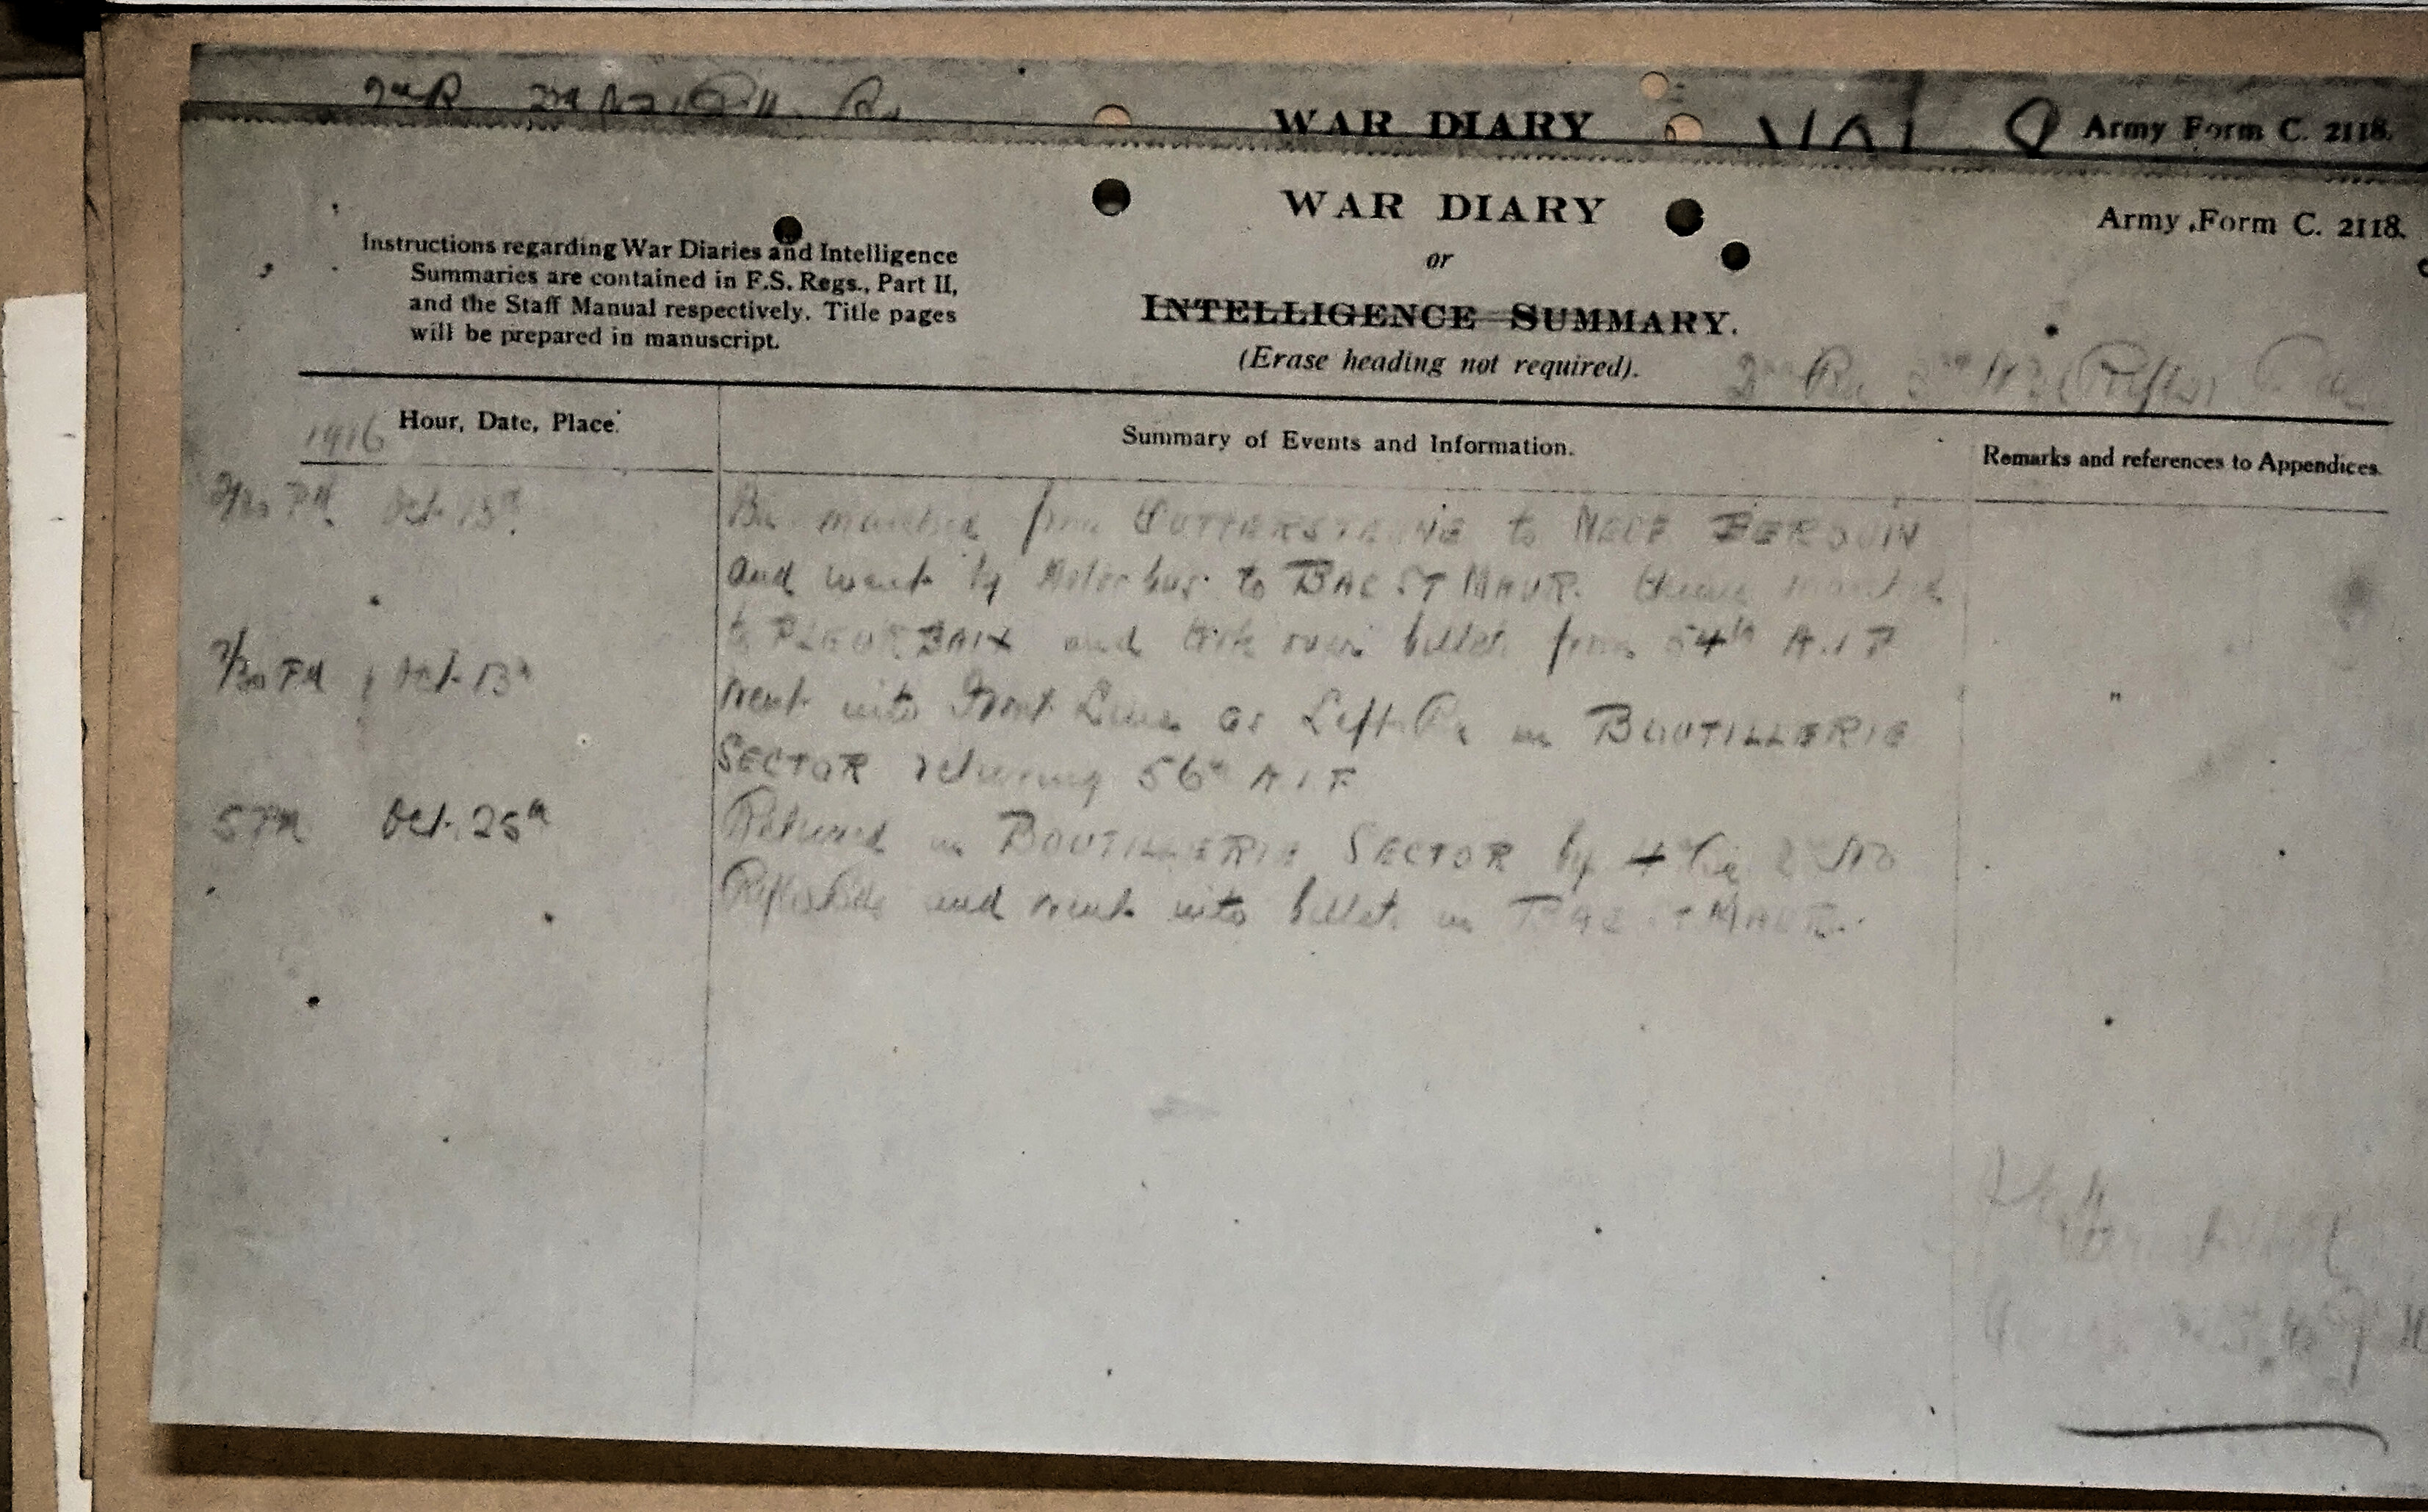 WAR DIARY
Army Form C. 2118.
WAR DIARY
Army Form C. 2118.
or
Instructions regarding War Diaries and Intelligence
Summaries are contained in F.S. Regs., Part II,
and the Staff Manual respectively. Title pages
will be prepared in manuscript.
INTELLIGENCE SUMMARY.
(Erase heading not required).
2nd Bn 3rd N.Z. Rifle
1916 Hour, Date, Place.
Summary of Events and Information.
Remarks and references to Appendices.
PM Oct
Bn marched from OUTTERSTEENE to NEUF BERQUIN
and went by Motor bus to BAC ST MAUR. thence marched
to FLEURBAIX and took over billets from 54th A.I.F
PM Oct 13th
Went into Front Line as Left Bn in BOUTILLERIE
SECTOR relieving 56th A I F
5 PM Oct. 25th
Relieved in BOUTILLERIE SECTOR by 4th Bn NZ
and went into billets in BAC ST MAUR.